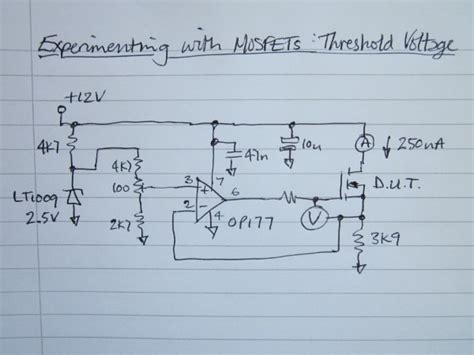 Experimenting with MOSFETs: Threshold Voltage
+12V
4k7
4k7
47n
10u
A
250uA
LT1009
2.5V
100
3
+
7
6
2
-
4
OP177
V
D.U.T.
2k7
3k9